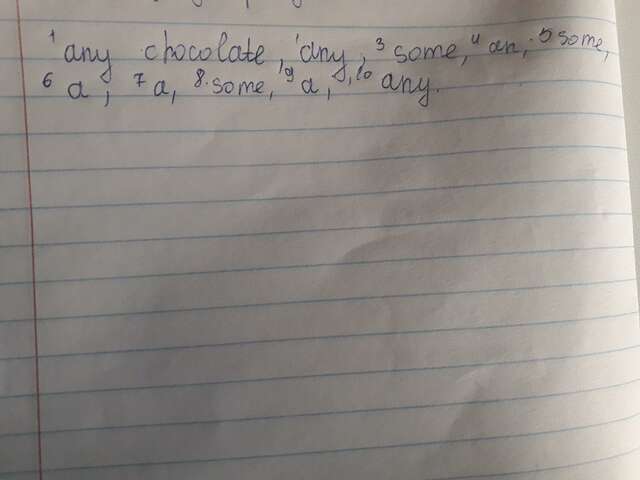 1 any chocolate, 1 any, 3 some, 4 an, 5 some,
6 a, 7 a, 8. some, 9 a, 10 any.